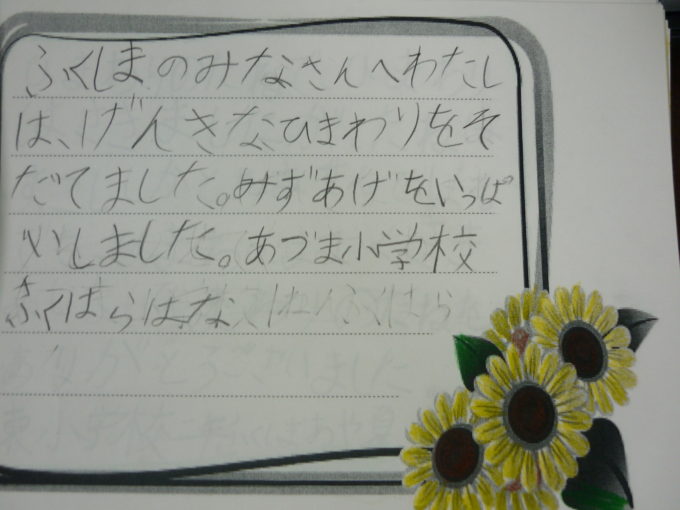 ふくしまのみなさんへわたし
は、げんきな、ひまわりをそ
だてました。みずあげをいっぱ
いしました。あづま小学校
ふくはらはな